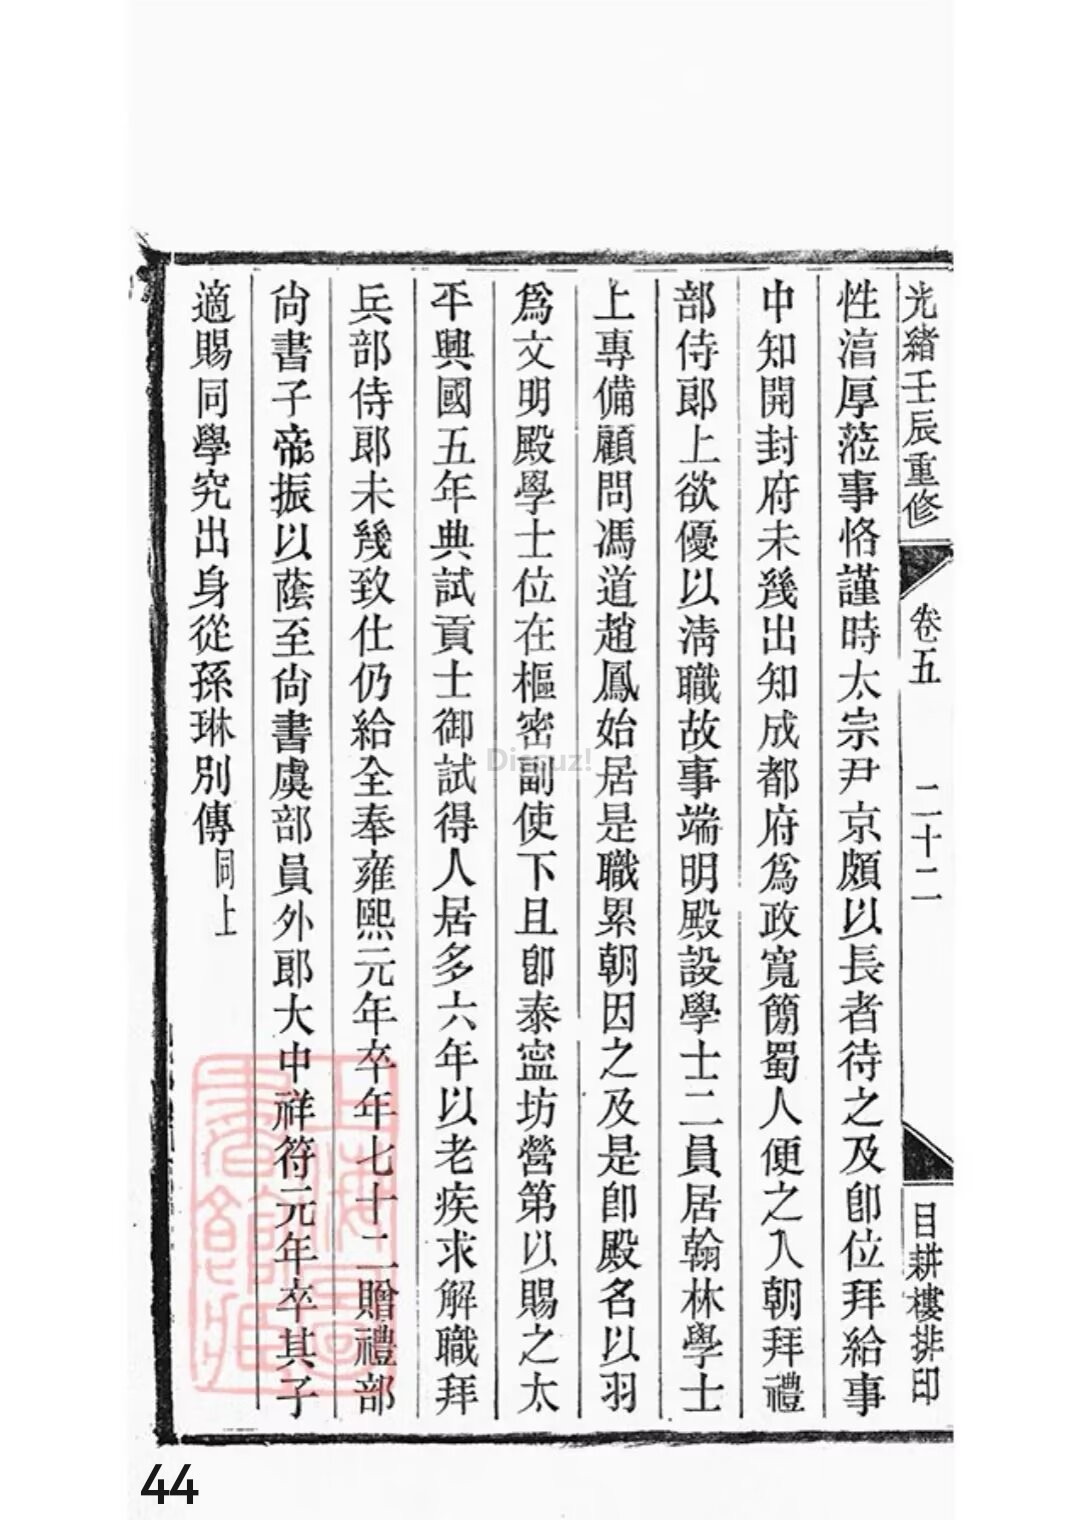 光緒壬辰重修 卷五 二十二 目耕樓排印
性湻厚蒞事恪謹時太宗尹京頗以長者待之及卽位拜給事
中知開封府未幾出知成都府爲政寬簡蜀人便之入朝拜禮
部侍郎上欲優以淸職故事端明殿設學士二員居翰林學士
上專備顧問馮道趙鳳始居是職累朝因之及是卽殿名以羽
爲文明殿學士位在樞密副使下且卽泰寍坊營第以賜之太
平興國五年典試貢士御試得人居多六年以老疾求解職拜
兵部侍郎未幾致仕仍給全奉雍熙元年卒年七十二贈禮部
尙書子帝振以蔭至尙書虞部員外郎大中祥符元年卒其子
適賜同學究出身從孫琳別傳同上
Discuz!
44